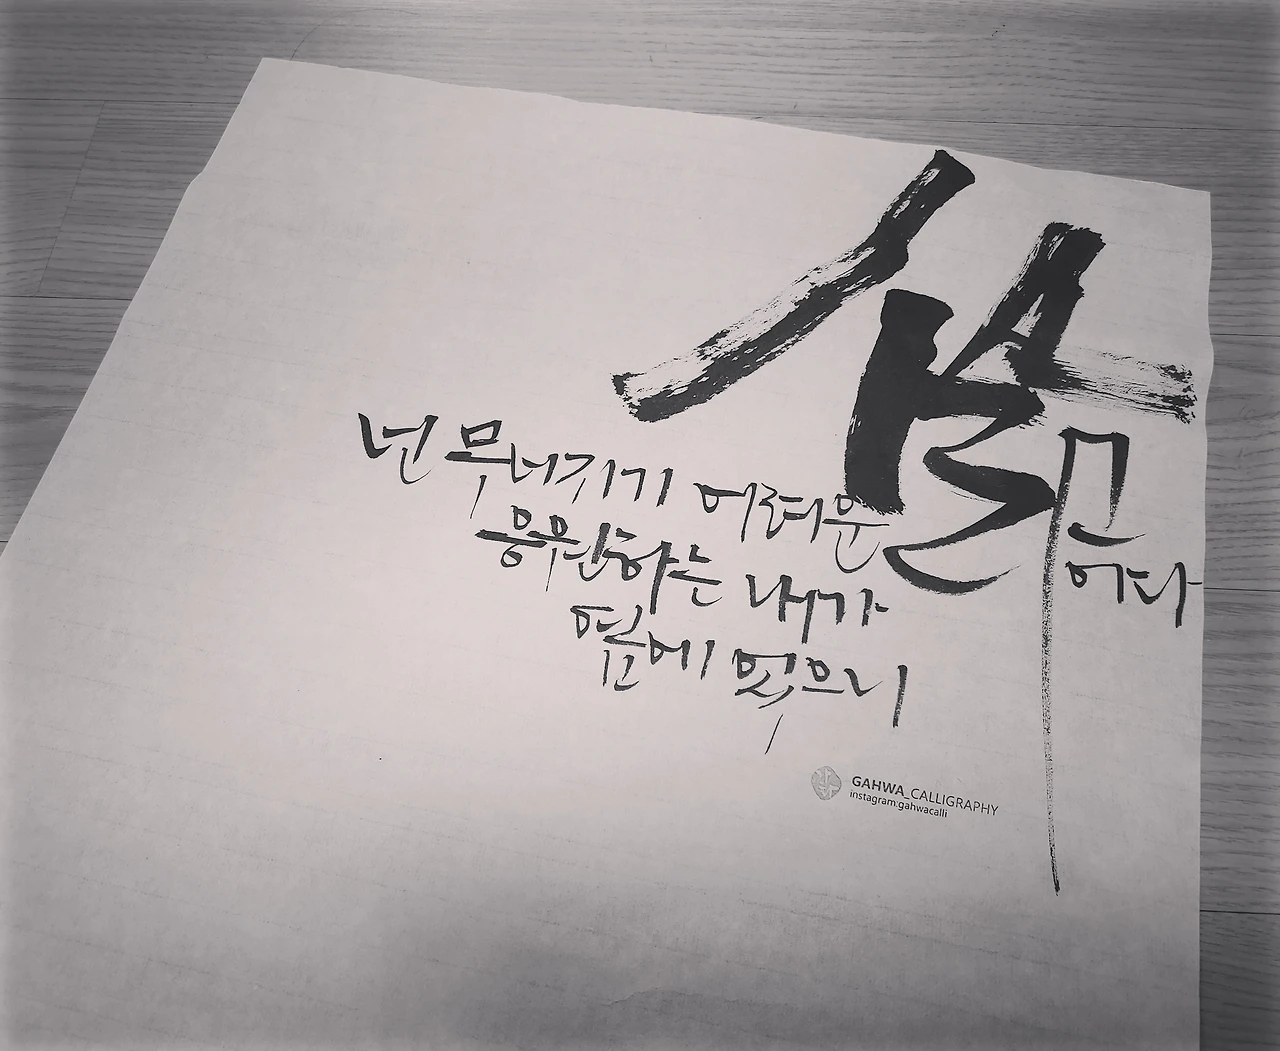 넌 무너지기 어려운 삶이다
응원하는 내가
옆에 있으니
GAHWA_CALLIGRAPHY
instagram:gahwacalli